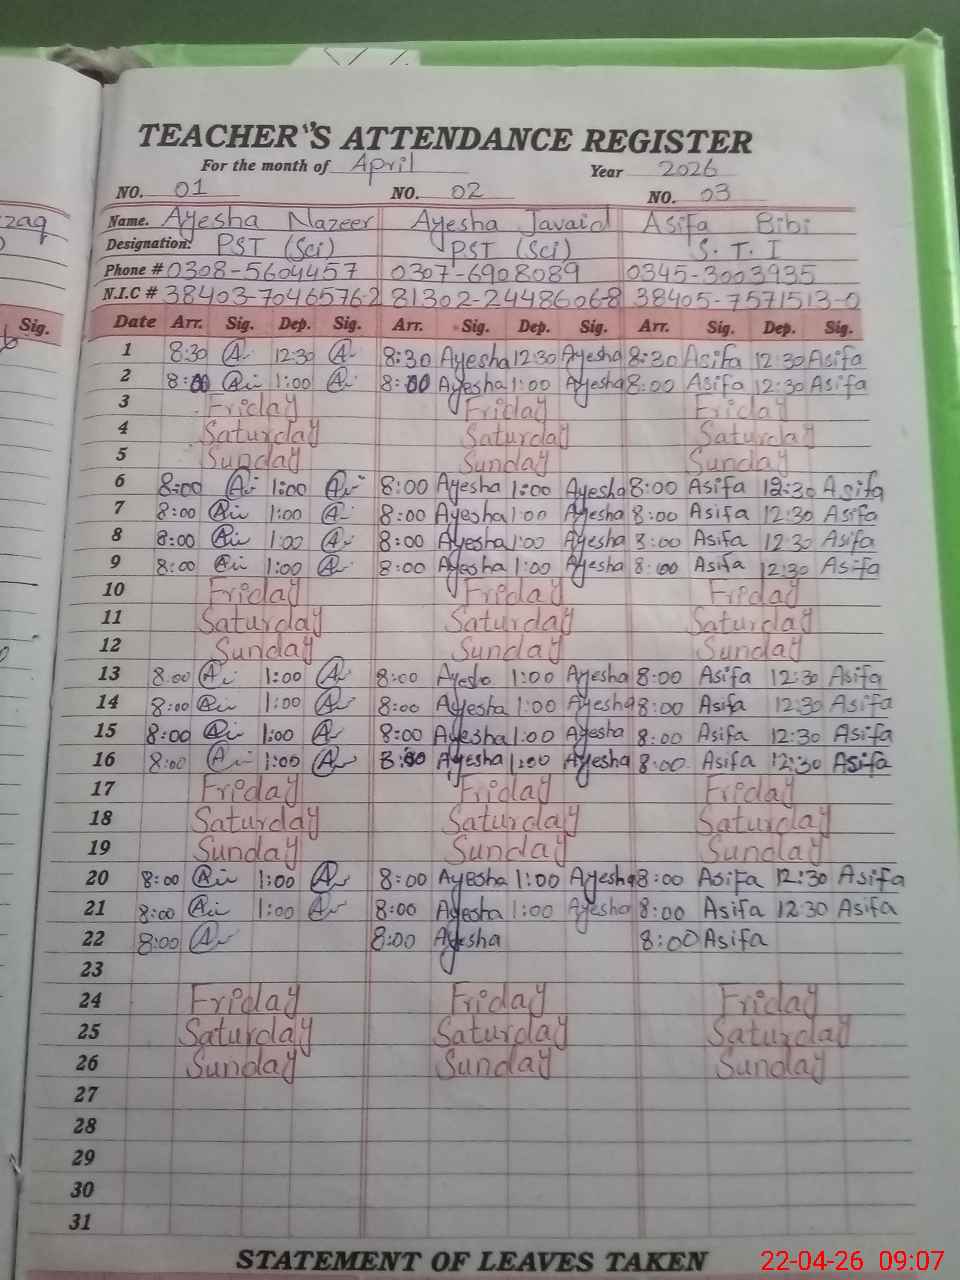 TEACHER'S ATTENDANCE REGISTER
For the month of April Year 2026
NO. 01 NO. 02 NO. 03
Name. Ayesha Nazeer Ayesha Javaid Asifa Bibi
Designation: PST (Sci) PST (Sci) S. T. I
Phone # 0308-5604457 0307-6908089 0345-3003935
N.I.C # 38403-7046576-2 81302-2448606-8 38405-7571513-0
Sig. Date Arr. Sig. Dep. Sig. Arr. Sig. Dep. Sig. Arr. Sig. Dep. Sig.
1 8:30 12:30 8:30 Ayesha 12:30 Ayesha 8:30 Asifa 12:30 Asifa
2 8:00 1:00 8:00 Ayesha 1:00 Ayesha 8:00 Asifa 12:30 Asifa
3 Friday Friday Friday
4 Saturday Saturday Saturday
5 Sunday Sunday Sunday
6 8:00 1:00 8:00 Ayesha 1:00 Ayesha 8:00 Asifa 12:30 Asifa
7 8:00 1:00 8:00 Ayesha 1:00 Ayesha 8:00 Asifa 12:30 Asifa
8 8:00 1:00 8:00 Ayesha 1:00 Ayesha 8:00 Asifa 12:30 Asifa
9 8:00 1:00 8:00 Ayesha 1:00 Ayesha 8:00 Asifa 12:30 Asifa
10 Friday Friday Friday
11 Saturday Saturday Saturday
12 Sunday Sunday Sunday
13 8:00 1:00 8:00 1:00 Ayesha 8:00 Asifa 12:30 Asifa
14 8:00 1:00 8:00 Ayesha 1:00 Ayesha 8:00 Asifa 12:30 Asifa
15 8:00 1:00 8:00 Ayesha 1:00 Ayesha 8:00 Asifa 12:30 Asifa
16 8:00 1:00 8:00 Ayesha 1:00 Ayesha 8:00 Asifa 12:30 Asifa
17 Friday Friday Friday
18 Saturday Saturday Saturday
19 Sunday Sunday Sunday
20 8:00 1:00 8:00 Ayesha 1:00 Ayesha 8:00 Asifa 12:30 Asifa
21 8:00 1:00 8:00 Ayesha 1:00 Ayesha 8:00 Asifa 12:30 Asifa
22 8:00 8:00 Ayesha 8:00 Asifa
23
24 Friday Friday Friday
25 Saturday Saturday Saturday
26 Sunday Sunday Sunday
27
28
29
30
31
STATEMENT OF LEAVES TAKEN
22-04-26 09:07